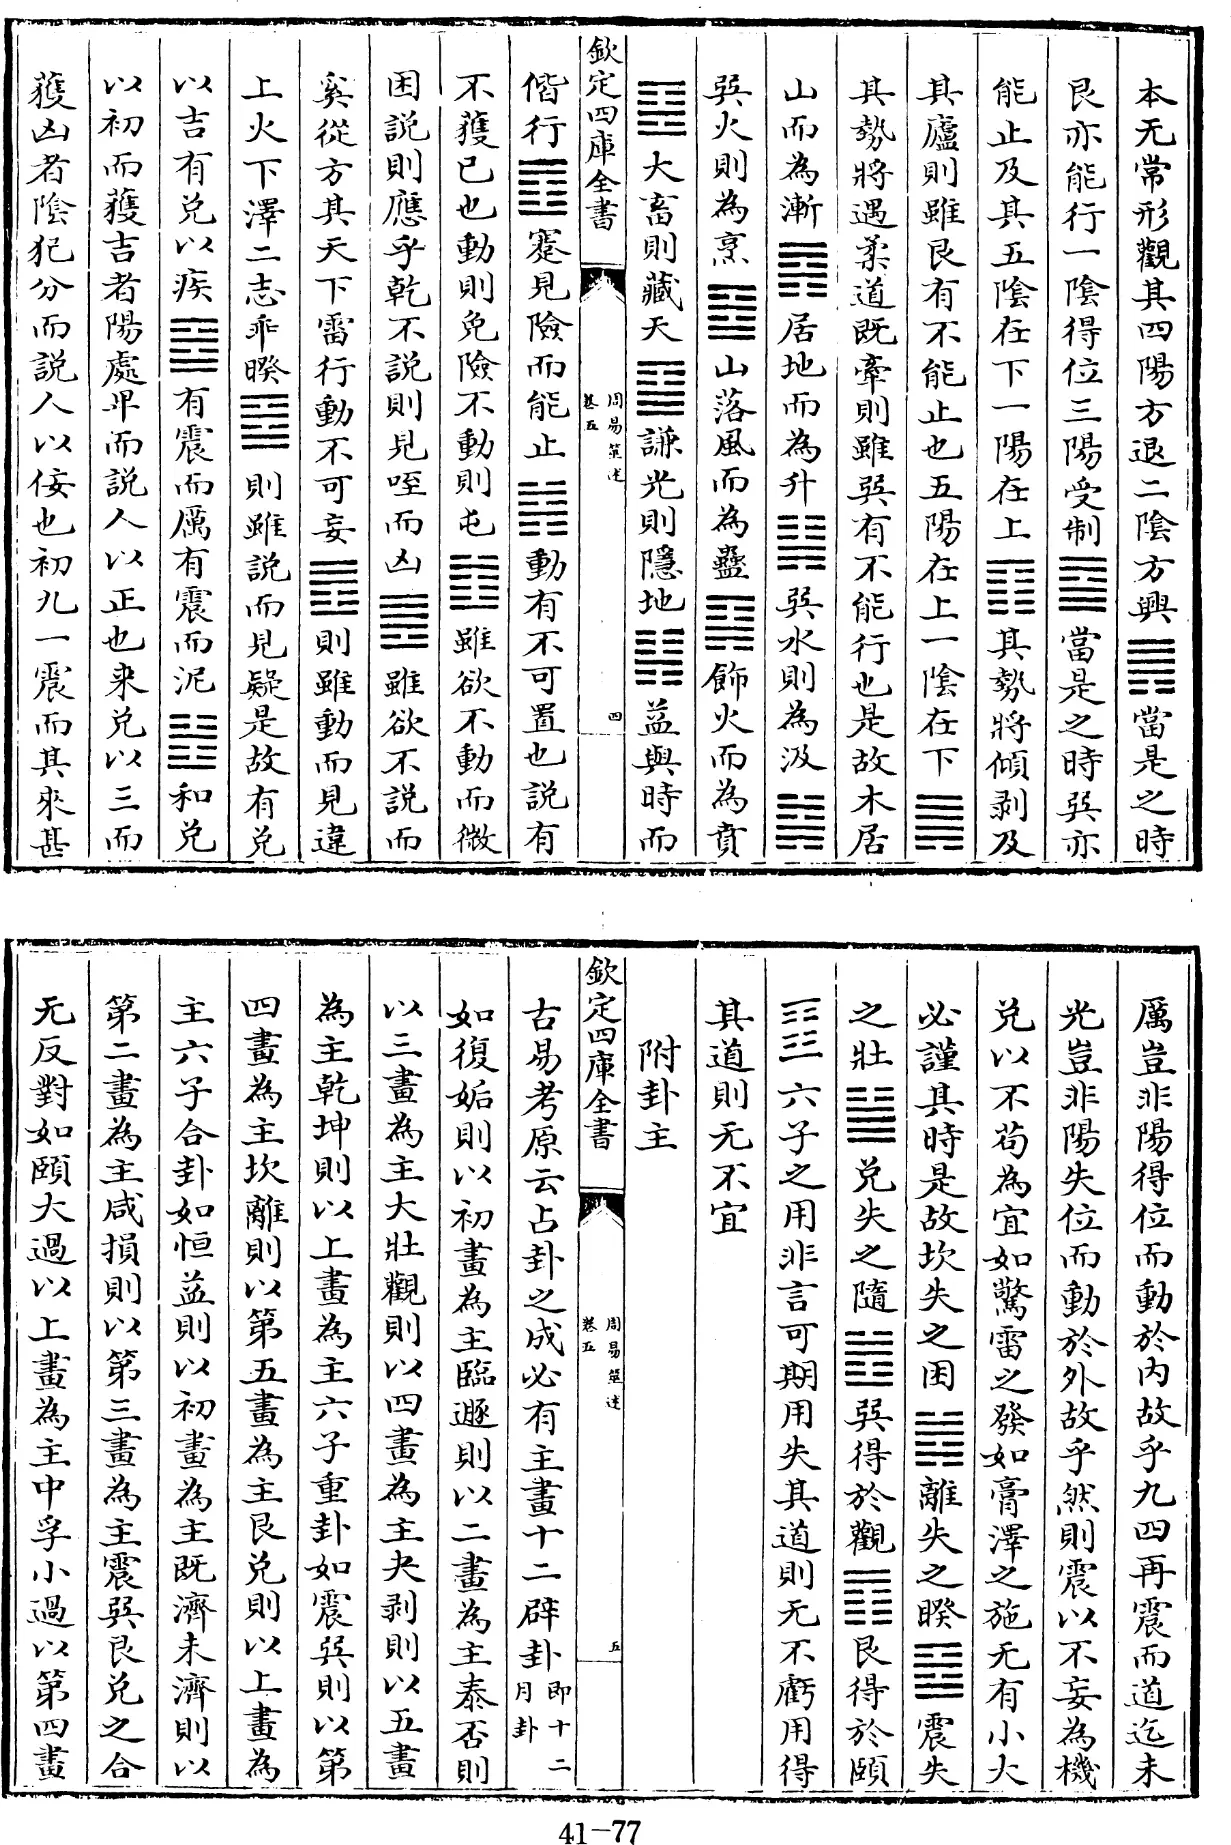 本无常形觀其四陽方退二陰方興䷠當是之時
艮亦能行一陰得位三陽受制䷈當是之時巽亦
能止及其五陰在下一陽在上䷖其勢將傾剥及
其廬則雖艮有不能止也五陽在上一陰在下䷫
其勢將遇柔道既牽則雖巽有不能行也是故木居
山而為漸䷴居地而為升䷭巽水則為汲䷯
巽火則為烹䷱山落風而為蠱䷑飾火而為賁
䷕大畜則藏天䷙謙光則隱地䷎益與時而
欽定四庫全書 周易筮述 卷五 四
偕行䷩蹇見險而能止䷦動有不可置也説有
不獲已也動則免險不動則屯䷂雖欲不動而微
困説則應乎乾不説則見咥而凶䷉雖欲不説而
奚從方其天下雷行動不可妄䷘則雖動而見違
上火下澤二志乖暌䷥則雖説而見疑是故有兑
以吉有兑以疾䷹有震而厲有震而泥䷲和兑
以初而獲吉者陽處卑而説人以正也来兑以三而
獲凶者陰犯分而説人以佞也初九一震而其來甚
厲豈非陽得位而動於内故乎九四再震而道迄未
光豈非陽失位而動於外故乎然則震以不妄為機
兑以不苟為宜如驚雷之發如膏澤之施无有小大
必謹其時是故坎失之困䷮離失之暌䷥震失
之壯䷡兑失之隨䷐巽得於觀䷓艮得於頤
䷚六子之用非言可期用失其道則无不虧用得
其道則无不宜
附卦主
欽定四庫全書 周易筮述 卷五 五
古易考原云占卦之成必有主畫十二辟卦即十二月卦
如復姤則以初畫為主臨遯則以二畫為主泰否則
以三畫為主大壯觀則以四畫為主夬剥則以五畫
為主乾坤則以上畫為主六子重卦如震巽則以第
四畫為主坎離則以第五畫為主艮兑則以上畫為
主六子合卦如恒益則以初畫為主既濟未濟則以
第二畫為主咸損則以第三畫為主震巽艮兑之合
无反對如頤大過以上畫為主中孚小過以第四畫
41-77